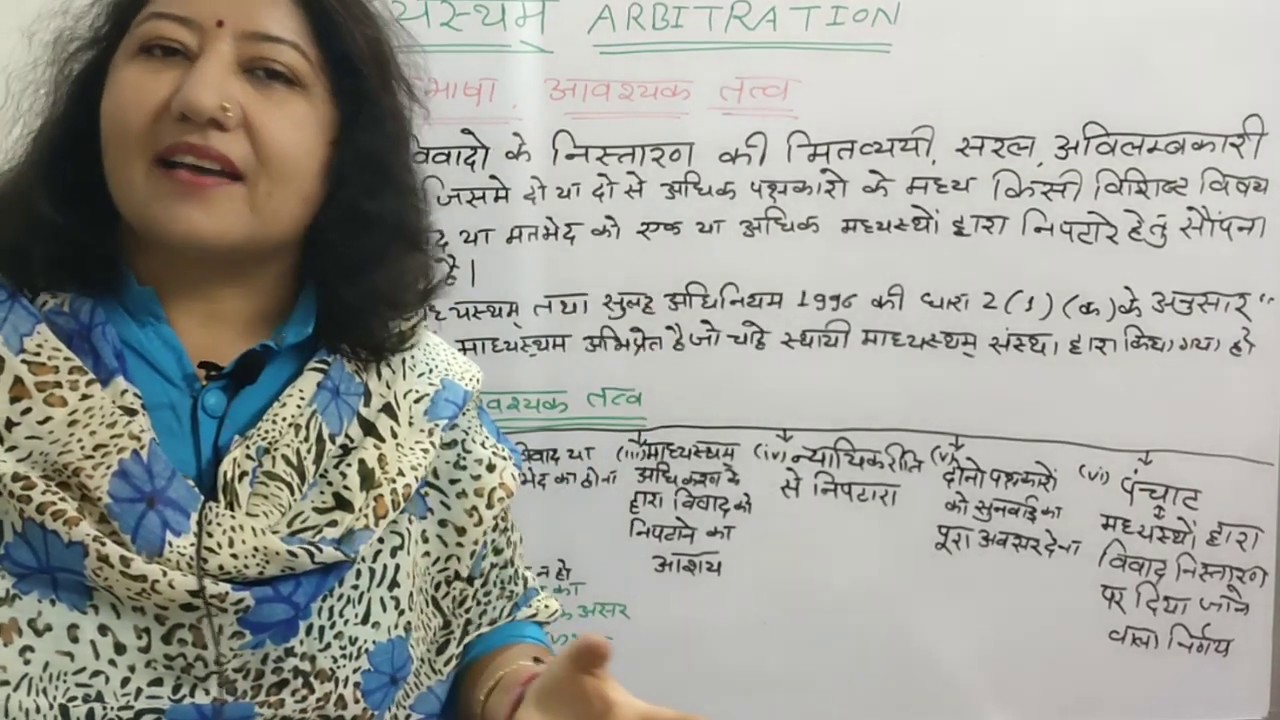 यस्थम् ARBITRATION
भाषा, आवश्यक तत्व
विवादो के निस्तारण की मितव्ययी, सरल, अविलम्बकारी
जिसमे दो या दो से अधिक पक्षकारो के मध्य किसी विशिष्ट विषय
या मतभेद को एक या अधिक मध्यस्थों द्वारा निपटारे हेतु सौंपना
है।
ध्यस्थम् तथा सुलह अधिनियम 1996 की धारा 2(1)(क) के अनुसार "
माध्यस्थम अभिप्रेत है जो चाहे स्थायी माध्यस्थम् संस्था द्वारा किया गया हो
वश्यक तत्व
विवाद या
भेद का होना
(iii) माध्यस्थम
अधिकरण के
द्वारा विवाद को
निपटाने का
आशय
(iv) न्यायिक रीति
से निपटारा
(v) दोनो पक्षकारों
को सुनवाई का
पूरा अवसर देना
(vi) पंचाट
मध्यस्थों द्वारा
विवाद निस्तारण
पर दिया जाने
वाला निर्णय
न हो
का
असर